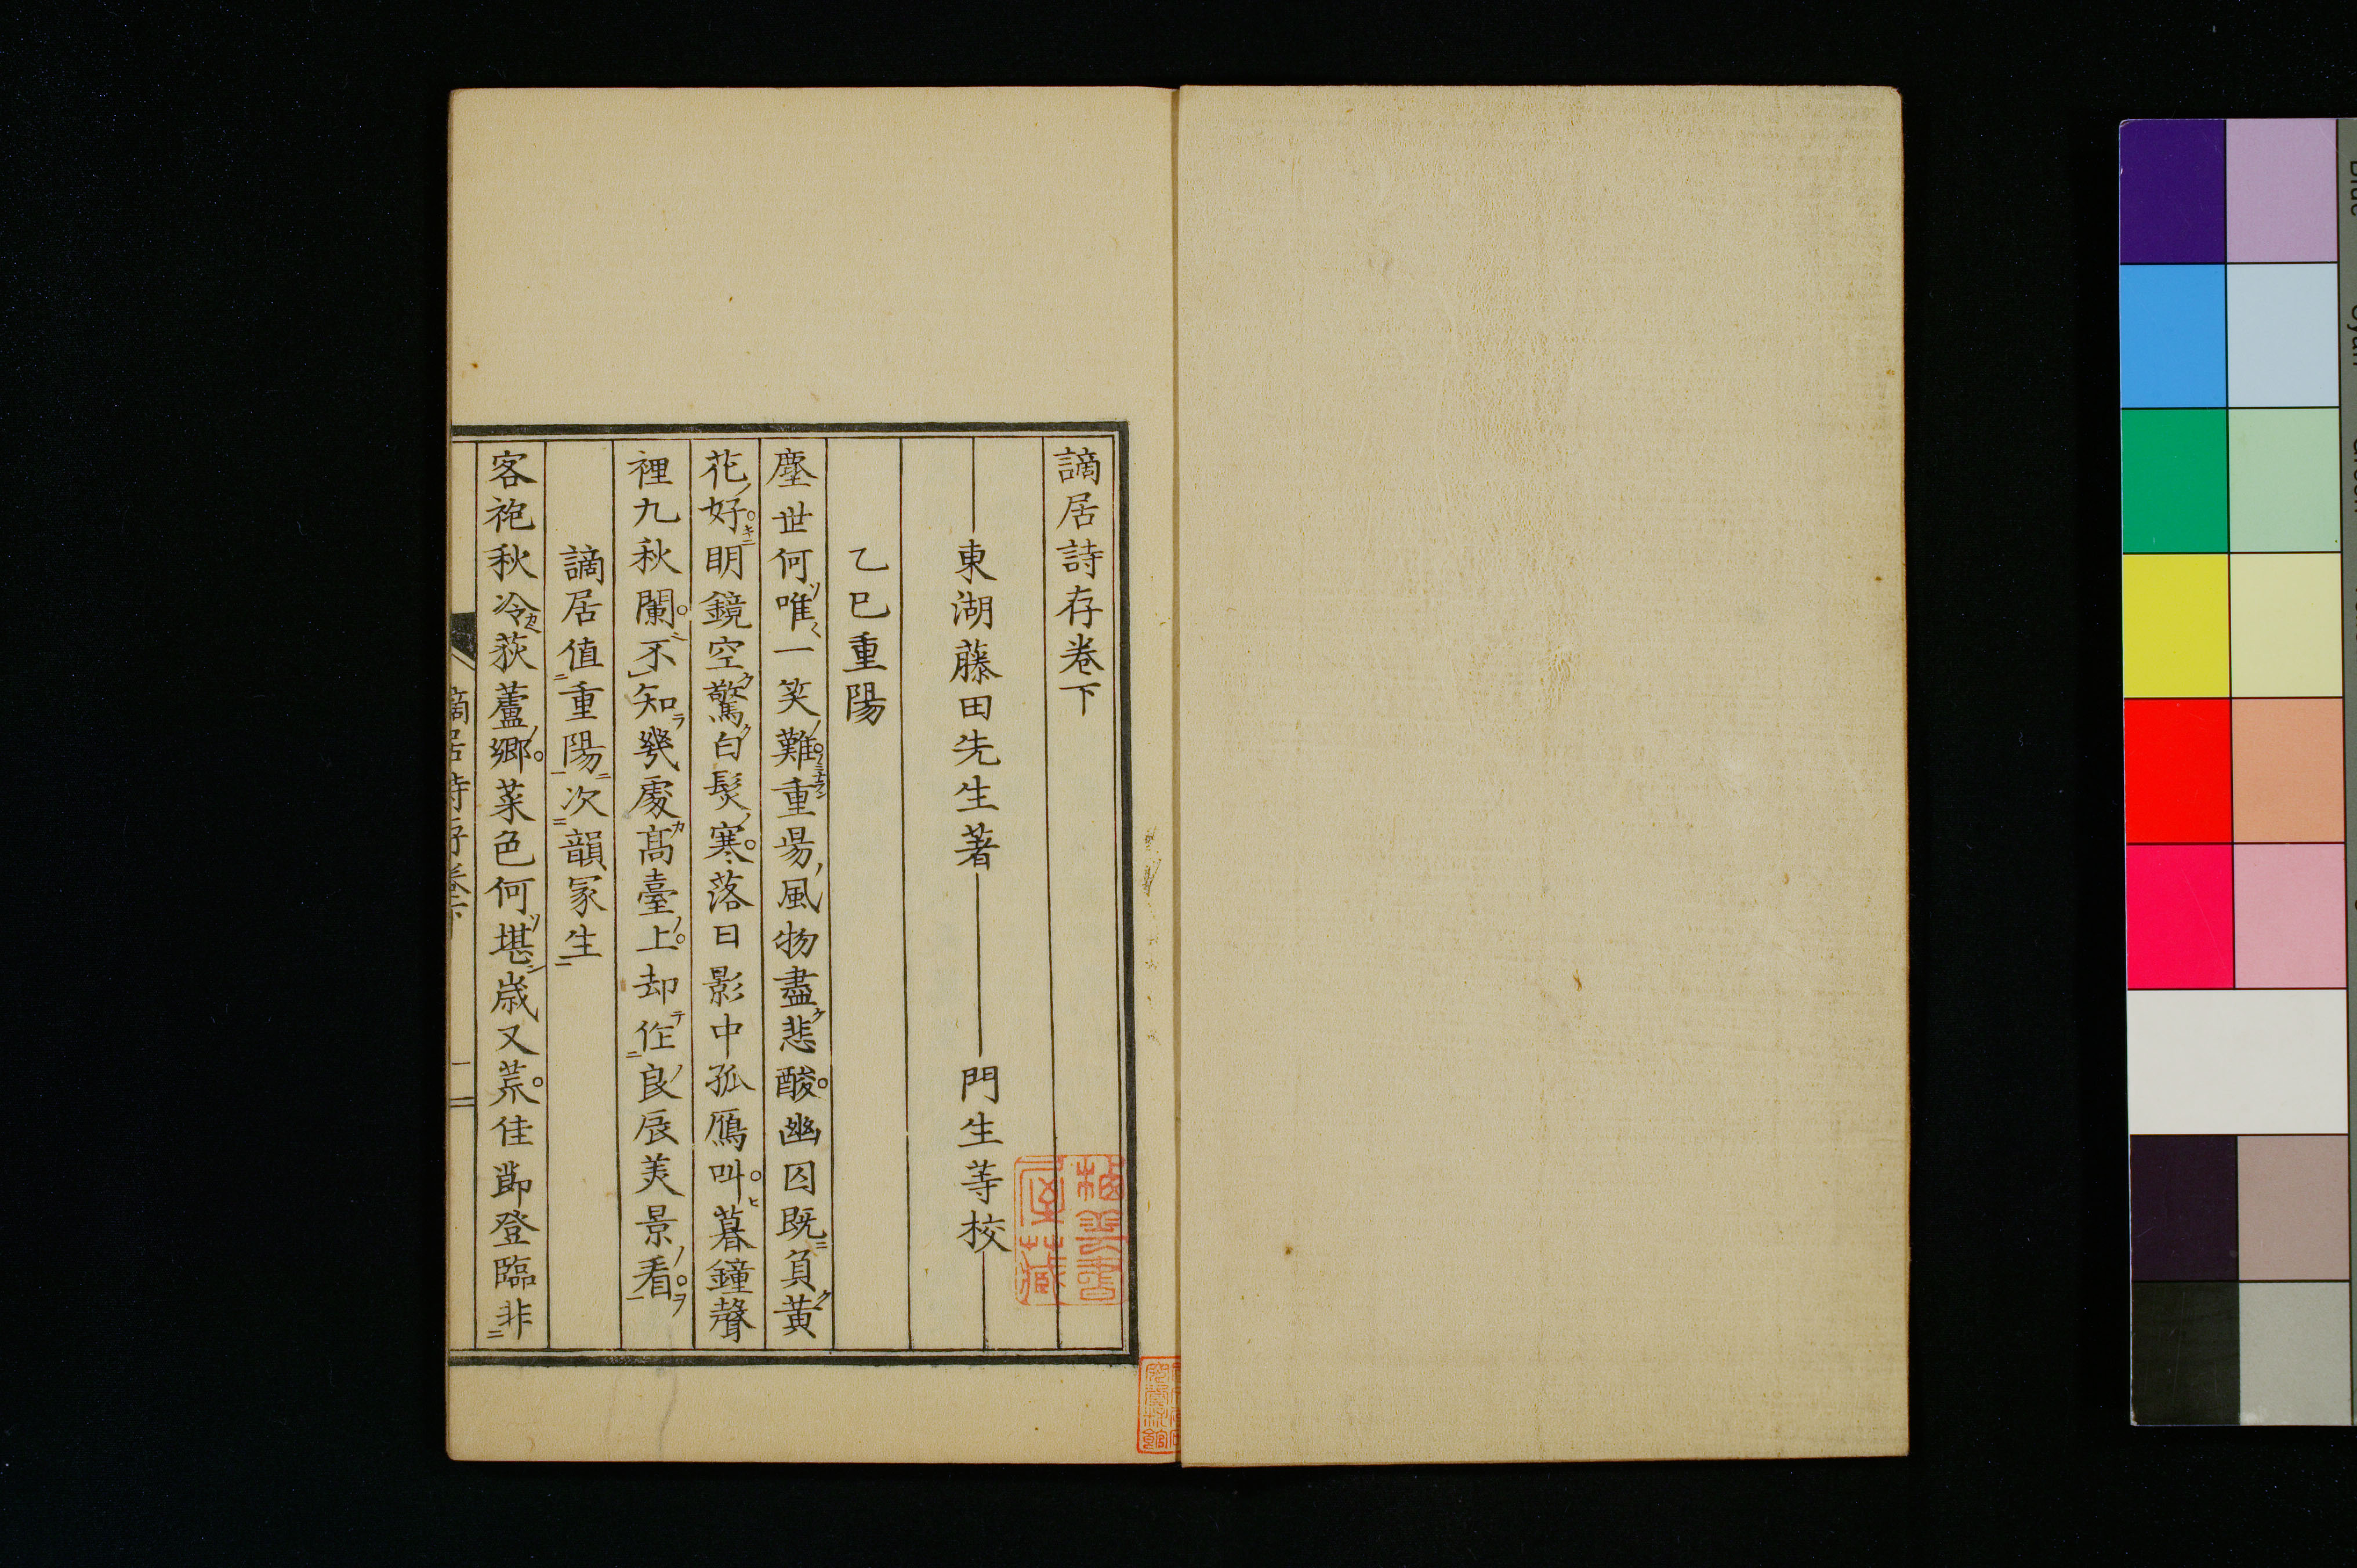 謫居詩存卷下
東湖藤田先生著 門生等校
乙巳重陽
塵世何唯一笑難重昜風物盡悲酸幽囚既負黃
花好明鏡空驚白髮寒落日影中孤鴈叫暮鐘聲
裡九秋闌不知幾處髙臺上却作良辰美景看
謫居值重陽次韻冢生
客袍秋冷荻蘆鄉菜色何堪歳又荒佳節登臨非
謫居詩存卷下
一